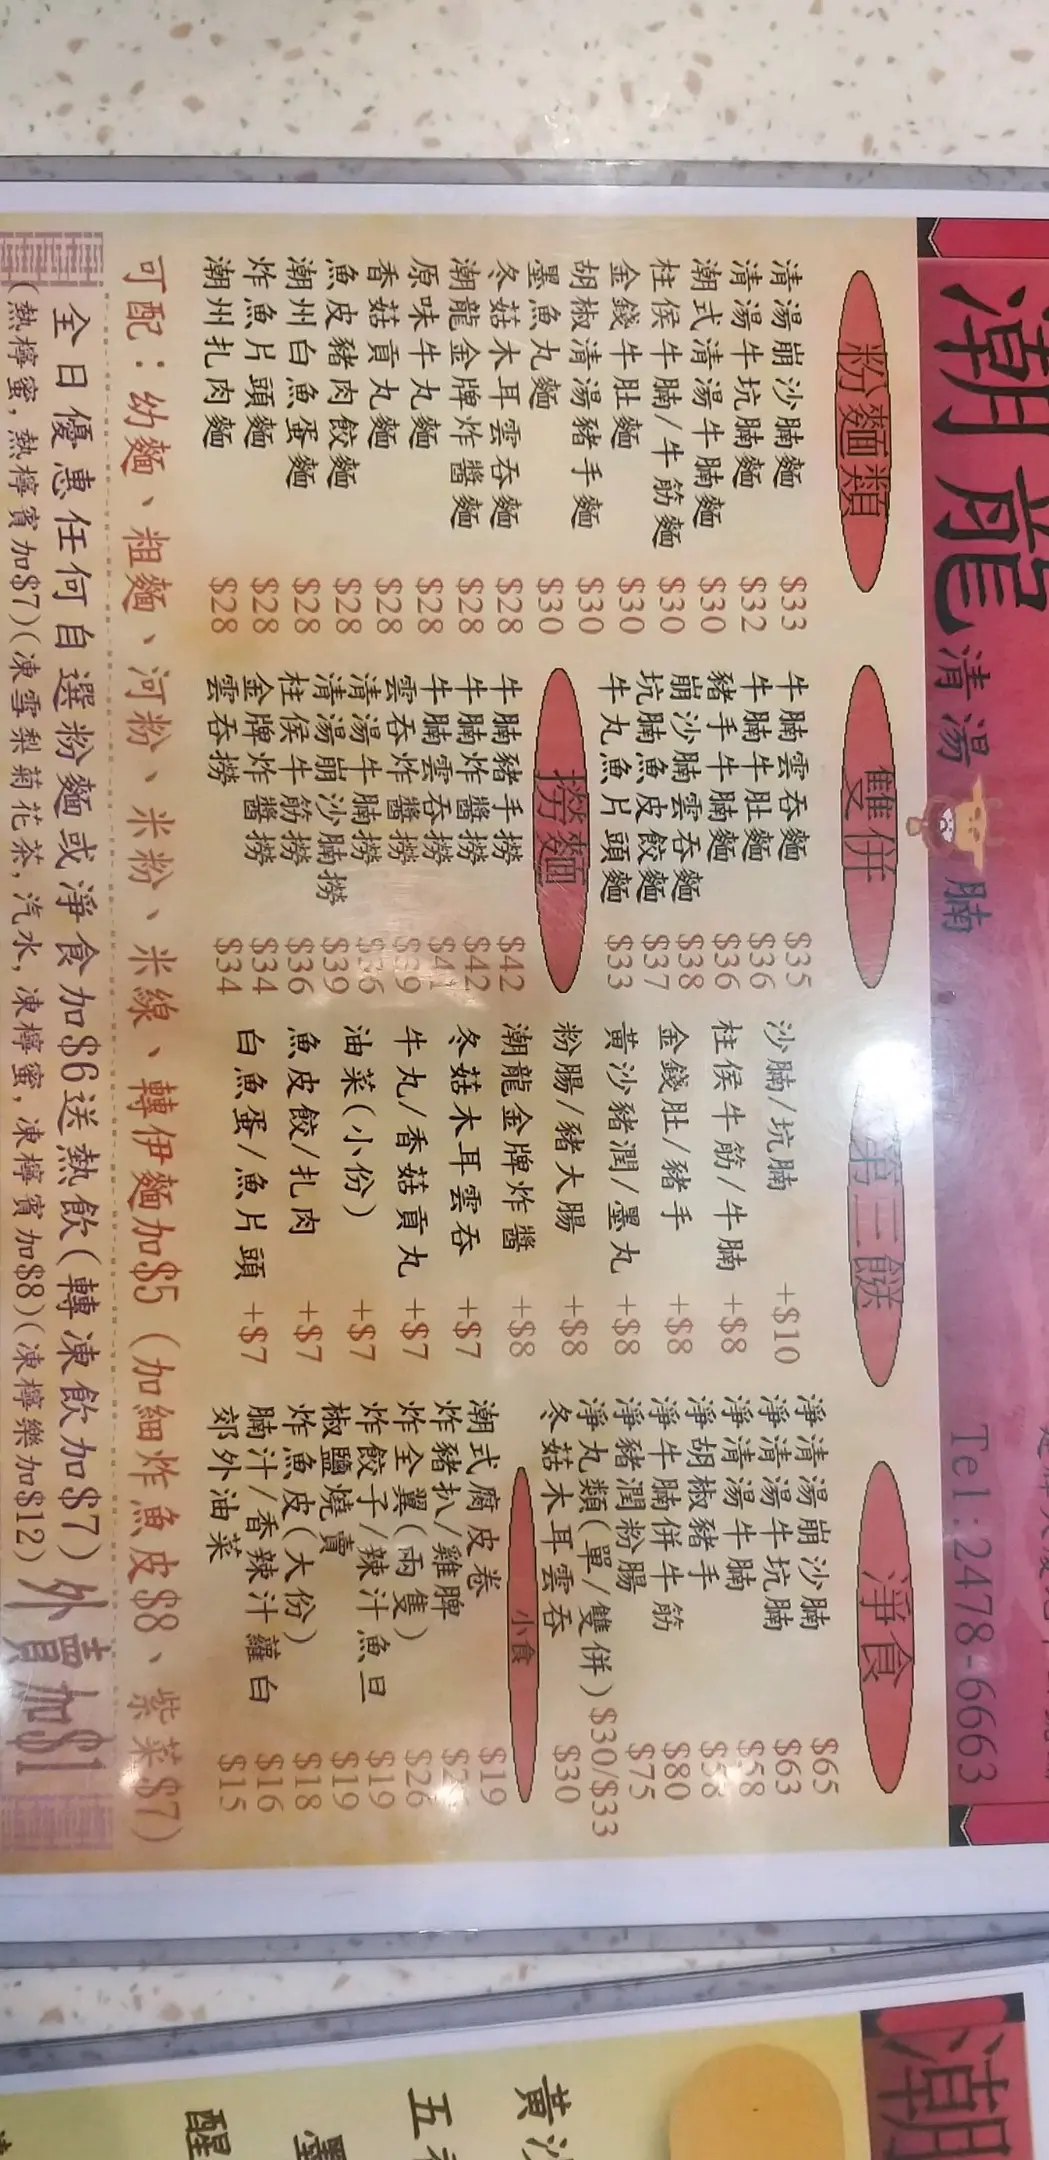 潮龍清湯腩
Tel:2478-6663
粉麵類
清湯崩沙腩麵 $33
清湯牛坑腩麵 $32
潮式清湯牛腩麵 $30
柱侯牛腩/牛筋麵 $30
金錢牛肚麵 $30
胡椒清湯豬手麵 $30
墨魚丸麵 $30
冬菇木耳雲吞麵 $28
潮龍金牌炸醬麵 $28
原味牛丸麵 $28
香菇貢丸麵 $28
魚皮豬肉餃麵 $28
潮州白魚蛋麵 $28
炸魚片頭麵 $28
潮州扎肉麵 $28
雙併
牛腩雲吞麵 $35
牛腩牛肚麵 $36
豬手牛腩麵 $36
崩沙腩雲吞麵 $38
坑腩魚皮餃麵 $37
牛丸魚片頭麵 $33
撈麵
牛腩豬手撈 $42
牛腩炸醬撈 $42
牛腩雲吞撈
雲吞炸醬撈
清湯牛腩撈
清湯崩沙腩撈 $39
柱侯牛筋撈 $36
金牌炸醬撈 $34
雲吞撈 $34
第三餸
沙腩/坑腩 +$10
柱侯牛筋/牛腩 +$8
金錢肚/豬手 +$8
黃沙豬潤/墨丸 +$8
粉腸/豬大腸 +$8
潮龍金牌炸醬 +$8
冬菇木耳雲吞 +$7
牛丸/香菇貢丸 +$7
油菜(小份) +$7
魚皮餃/扎肉 +$7
白魚蛋/魚片頭 +$7
淨食
淨清湯崩沙腩 $65
淨清湯牛坑腩 $63
淨清湯牛腩 $58
淨胡椒豬手 $58
淨牛腩併牛筋 $80
淨豬潤粉腸 $75
淨丸類(單/雙併) $30/$33
冬菇木耳雲吞 $30
小食
潮式腐皮卷 $19
炸豬扒/雞髀
炸全翼(兩隻) $26
炸餃子/辣汁魚旦 $19
椒鹽燒賣 $19
炸魚皮(大份) $18
腩汁/香辣汁蘿白 $16
郊外油菜 $15
可配：幼麵、粗麵、河粉、米粉、米線、轉伊麵加$5 (加細炸魚皮$8、紫菜$7)
全日優惠任何自選粉麵或淨食加$6送熱飲(轉凍飲加$7)
外賣加$1
(熱檸蜜,熱檸賓加$7)(凍雪梨菊花茶,汽水,凍檸蜜,凍檸賓加$8)(凍檸樂加$12)
潮
黃沙
五
墨
醒